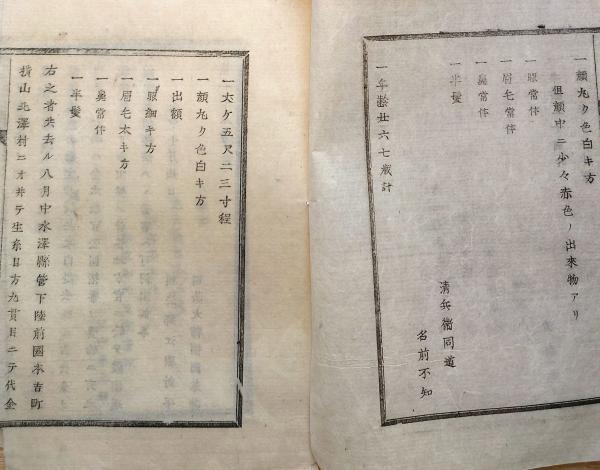 一顔丸ク色白キ方
但顔中ニ少々赤色ノ出来物アリ
一眼常体
一眉毛常体
一鼻常体
一半髪
一年齢廿六七歳計
清兵衛同道
名前不知
一丈ケ五尺二三寸程
一顔丸ク色白キ方
一出額
一眼細キ方
一眉毛太キ方
一鼻常体
一半髪
右之者共去ル八月中水澤縣管下陸前國本吉町
横山北澤村ニオヰテ生糸目方九貫目ニテ代金